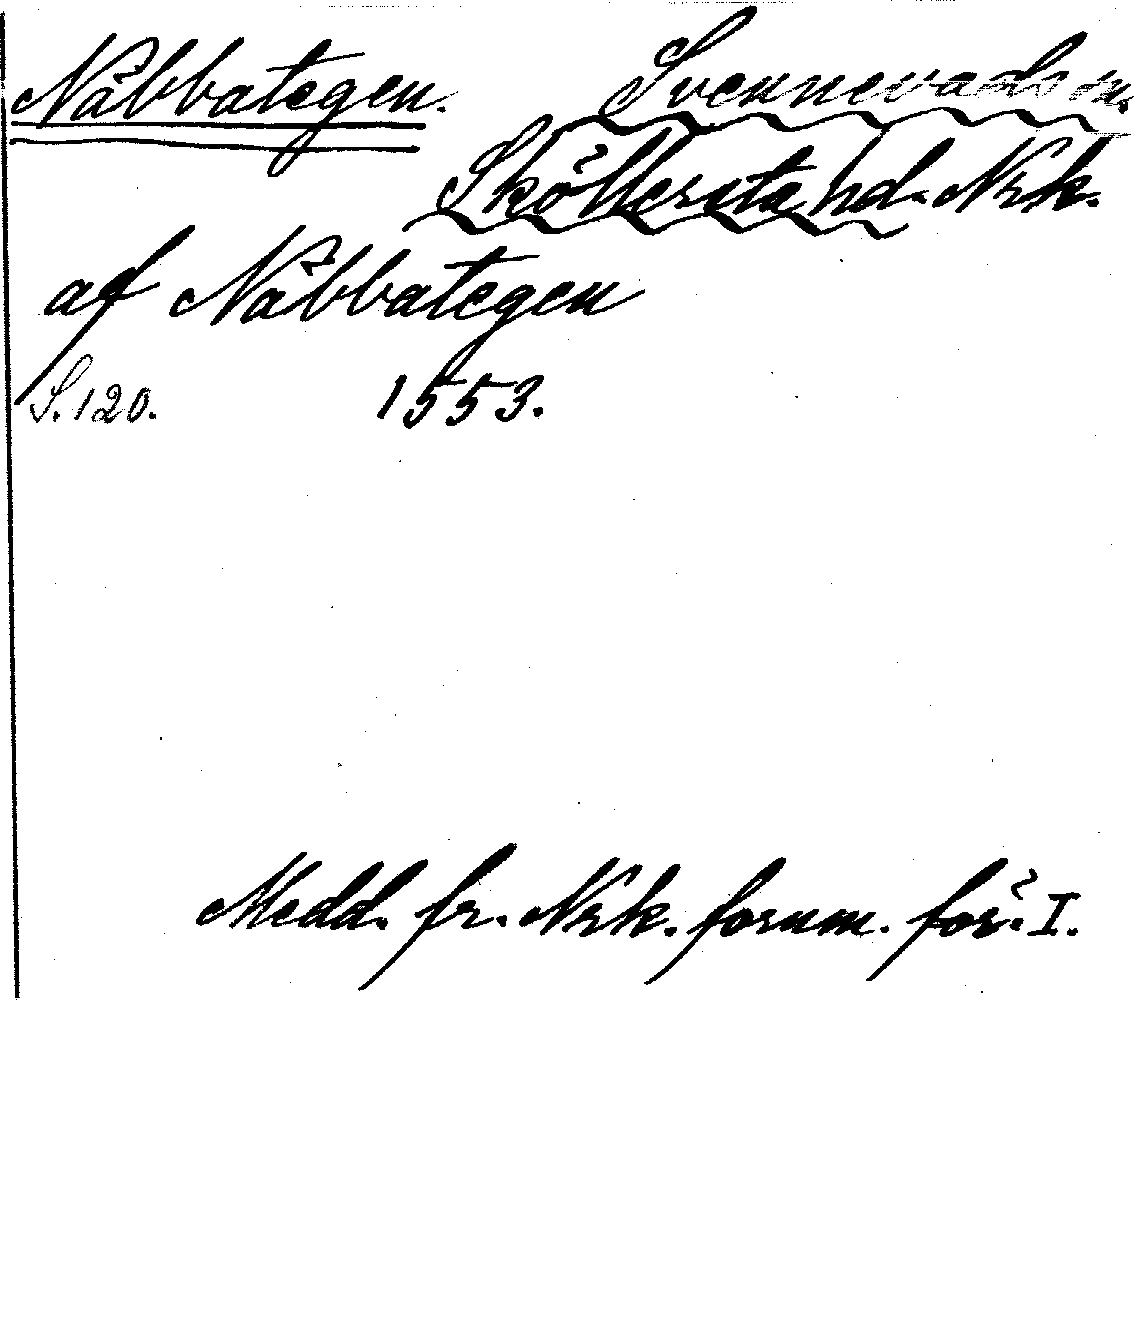 Näbbategen. Svennevads sn.
Sköllersta hd. Nrk.
af Näbbategen
S. 120. 1553.
Medd. fr. Nrk. fornm. för. I.